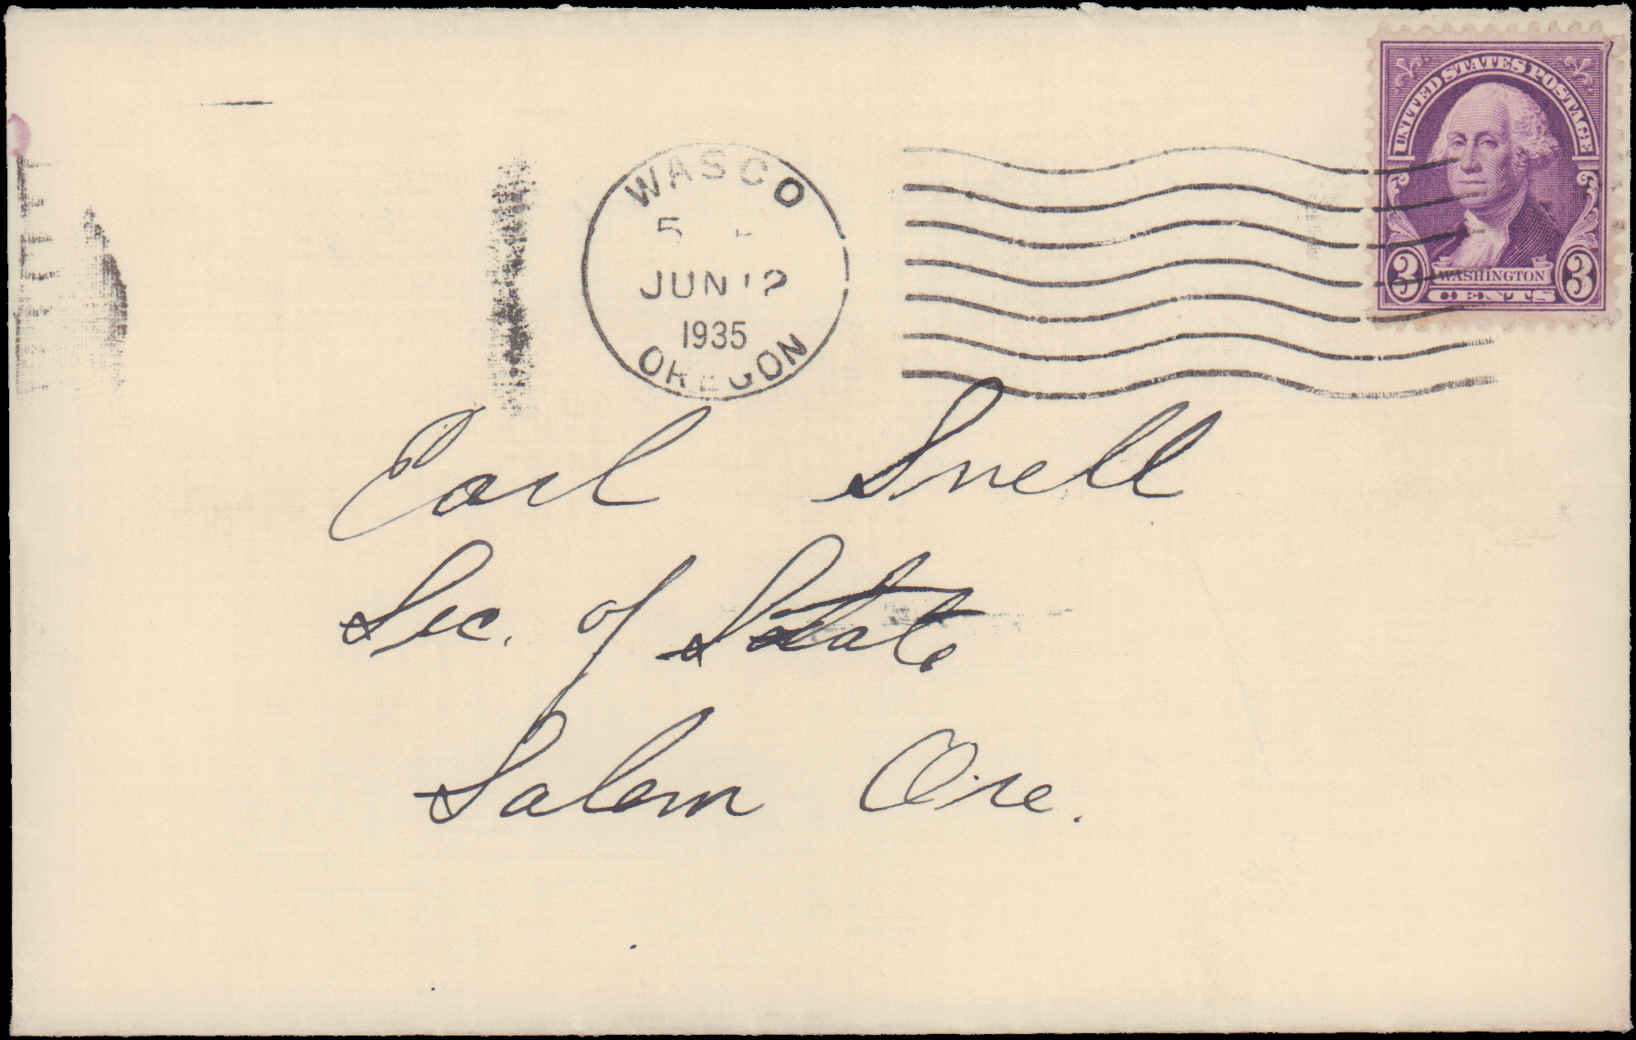 UNITED STATES POSTAGE
WASHINGTON
3 CENTS 3
WASCO
5
JUN 12
1935
OREGON
Earl Snell
Sec. of State
Salem Ore.